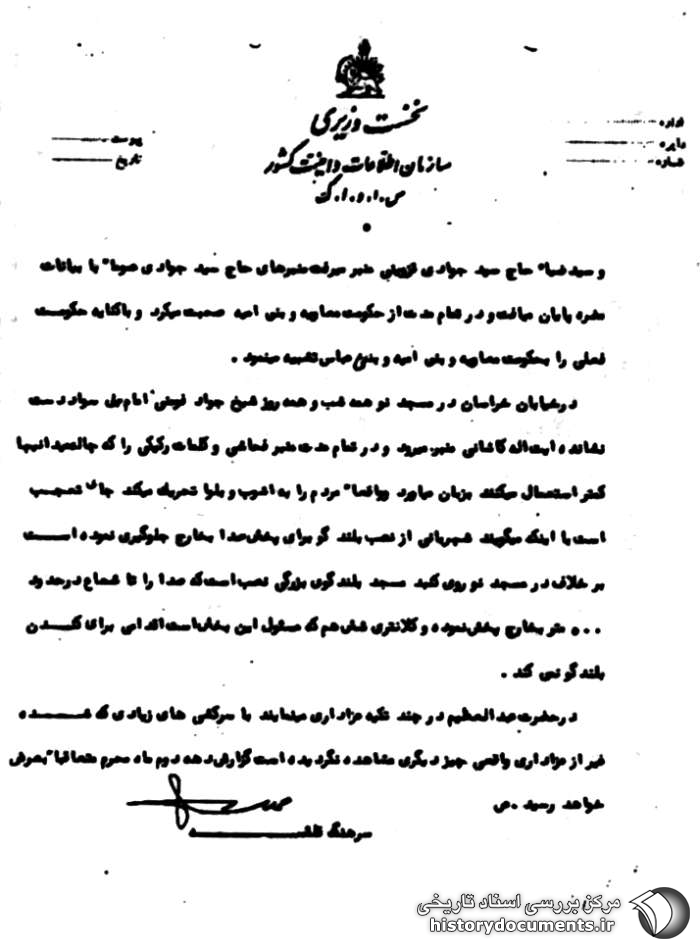 نخست وزیری
سازمان اطلاعات و امنیت کشور
س.ا.و.ا.ک
اداره
دایره
شماره
پیوست
تاریخ
و سید ضیاء حاج سید جوادی قزوینی منبر میرفت منبرهای حاج سید جوادی عموماً با بیانات
مضره پایان مییافت و در تمام مدت از حکومت معاویه و بنی امیه صحبت میکرد و باکنایه حکومت
فعلی را بحکومت معاویه و بنی امیه و بنی عباس تشبیه مینمود .
درخیابان خراسان در مسجد نو همه شب و همه روز شیخ جواد فومنی امام بی سواد دست
نشانده ایت اله کاشانی منبر میرود و در تمام مدت منبر فحاشی و کلمات رکیکی را که چاله میدانیها
کمتر استعمال میکنند بزبان میاورد و واقعاً مردم را به اشوب و بلوا تحریک میکند جای تعجب
است با اینکه میگویند شهربانی از نصب بلند گو برای پخش صدا بخارج جلوگیری نموده است
بر خلاف در مسجد نو روی گنبد مسجد بلندگوی بزرگی نصب است که صدا را تا شعاع درحدود
۵۰۰ متر بخارج پخش نموده و کلانتری شش هم که مسئول این بخش است اقدامی برای کندن
بلندگو نمی کند .
درحضرت عبدالعظیم در چند تکیه عزاداری مینمایند با سرکشی های زیادی که شده
غیر از عزاداری واقعی چیز دیگری مشاهده نگردیده است گزارش دهه دوم ماه محرم متعاقباً بعرض
خواهد رسید .ص
سرهنگ
مرکز بررسی اسناد تاریخی
historydocuments.ir